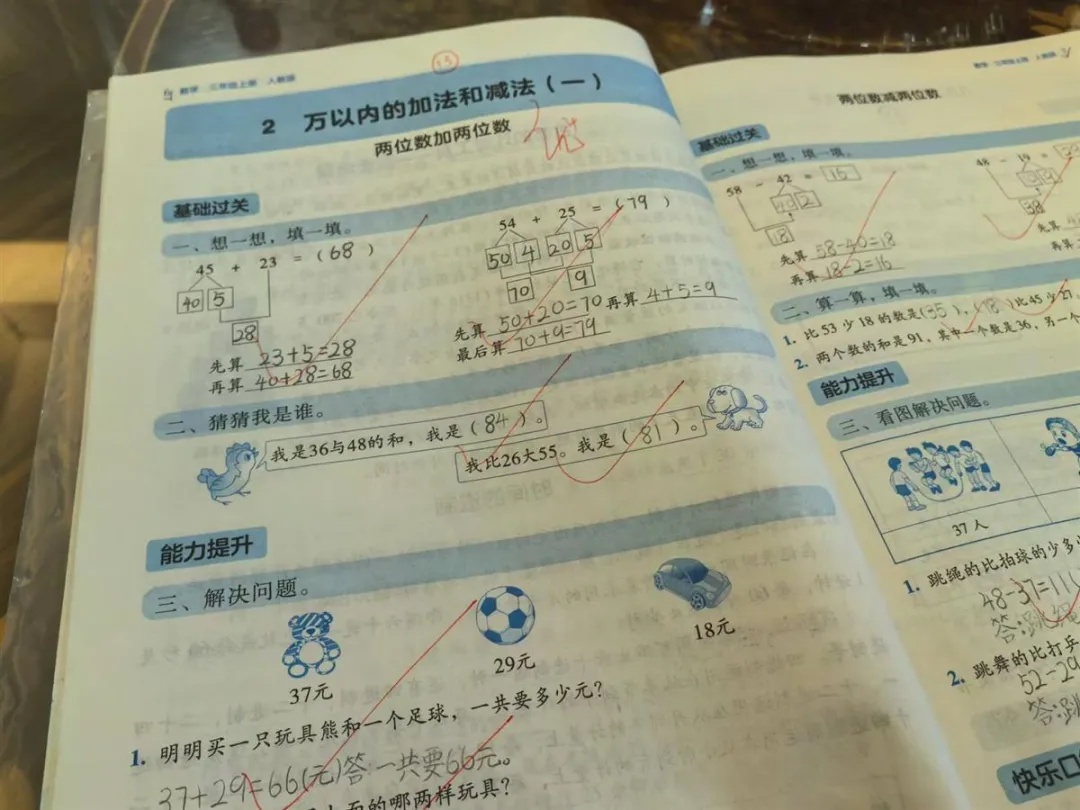 数学 三年级上册 人教版
13
2 万以内的加法和减法（一）
两位数加两位数
基础过关
一、想一想，填一填。
45 + 23 =（68）
40 5
28
先算 23+5=28
再算 40+28=68
54 + 25 =（79）
50 4 20 5
70 9
先算 50+20=70 再算 4+5=9
最后算 70+9=79
二、猜猜我是谁。
我是36与48的和，我是（84）。
我比26大55。我是（81）。
能力提升
三、解决问题。
37元
29元
18元
1. 明明买一只玩具熊和一个足球，一共要多少元？
37+29=66(元)答:一共要66元。
上面的哪两样玩具？
数学 三年级上册 人教版
两位数减两位数
基础过关
一、想一想，填一填。
58 - 42 = 16
40 2
18
先算 58-40=18
再算 18-2=16
48 - 19 =
38
先算
再算
二、算一算，填一填。
1. 比53少18的数是（35），（18）比45少27。
2. 两个数的和是91，其中一个数是36，另一个
能力提升
三、看图解决问题。
37人
1. 跳绳的比拍球的少多少
48-37=11(
答:跳绳
2. 跳舞的比打乒
52-29
答:跳
快乐口